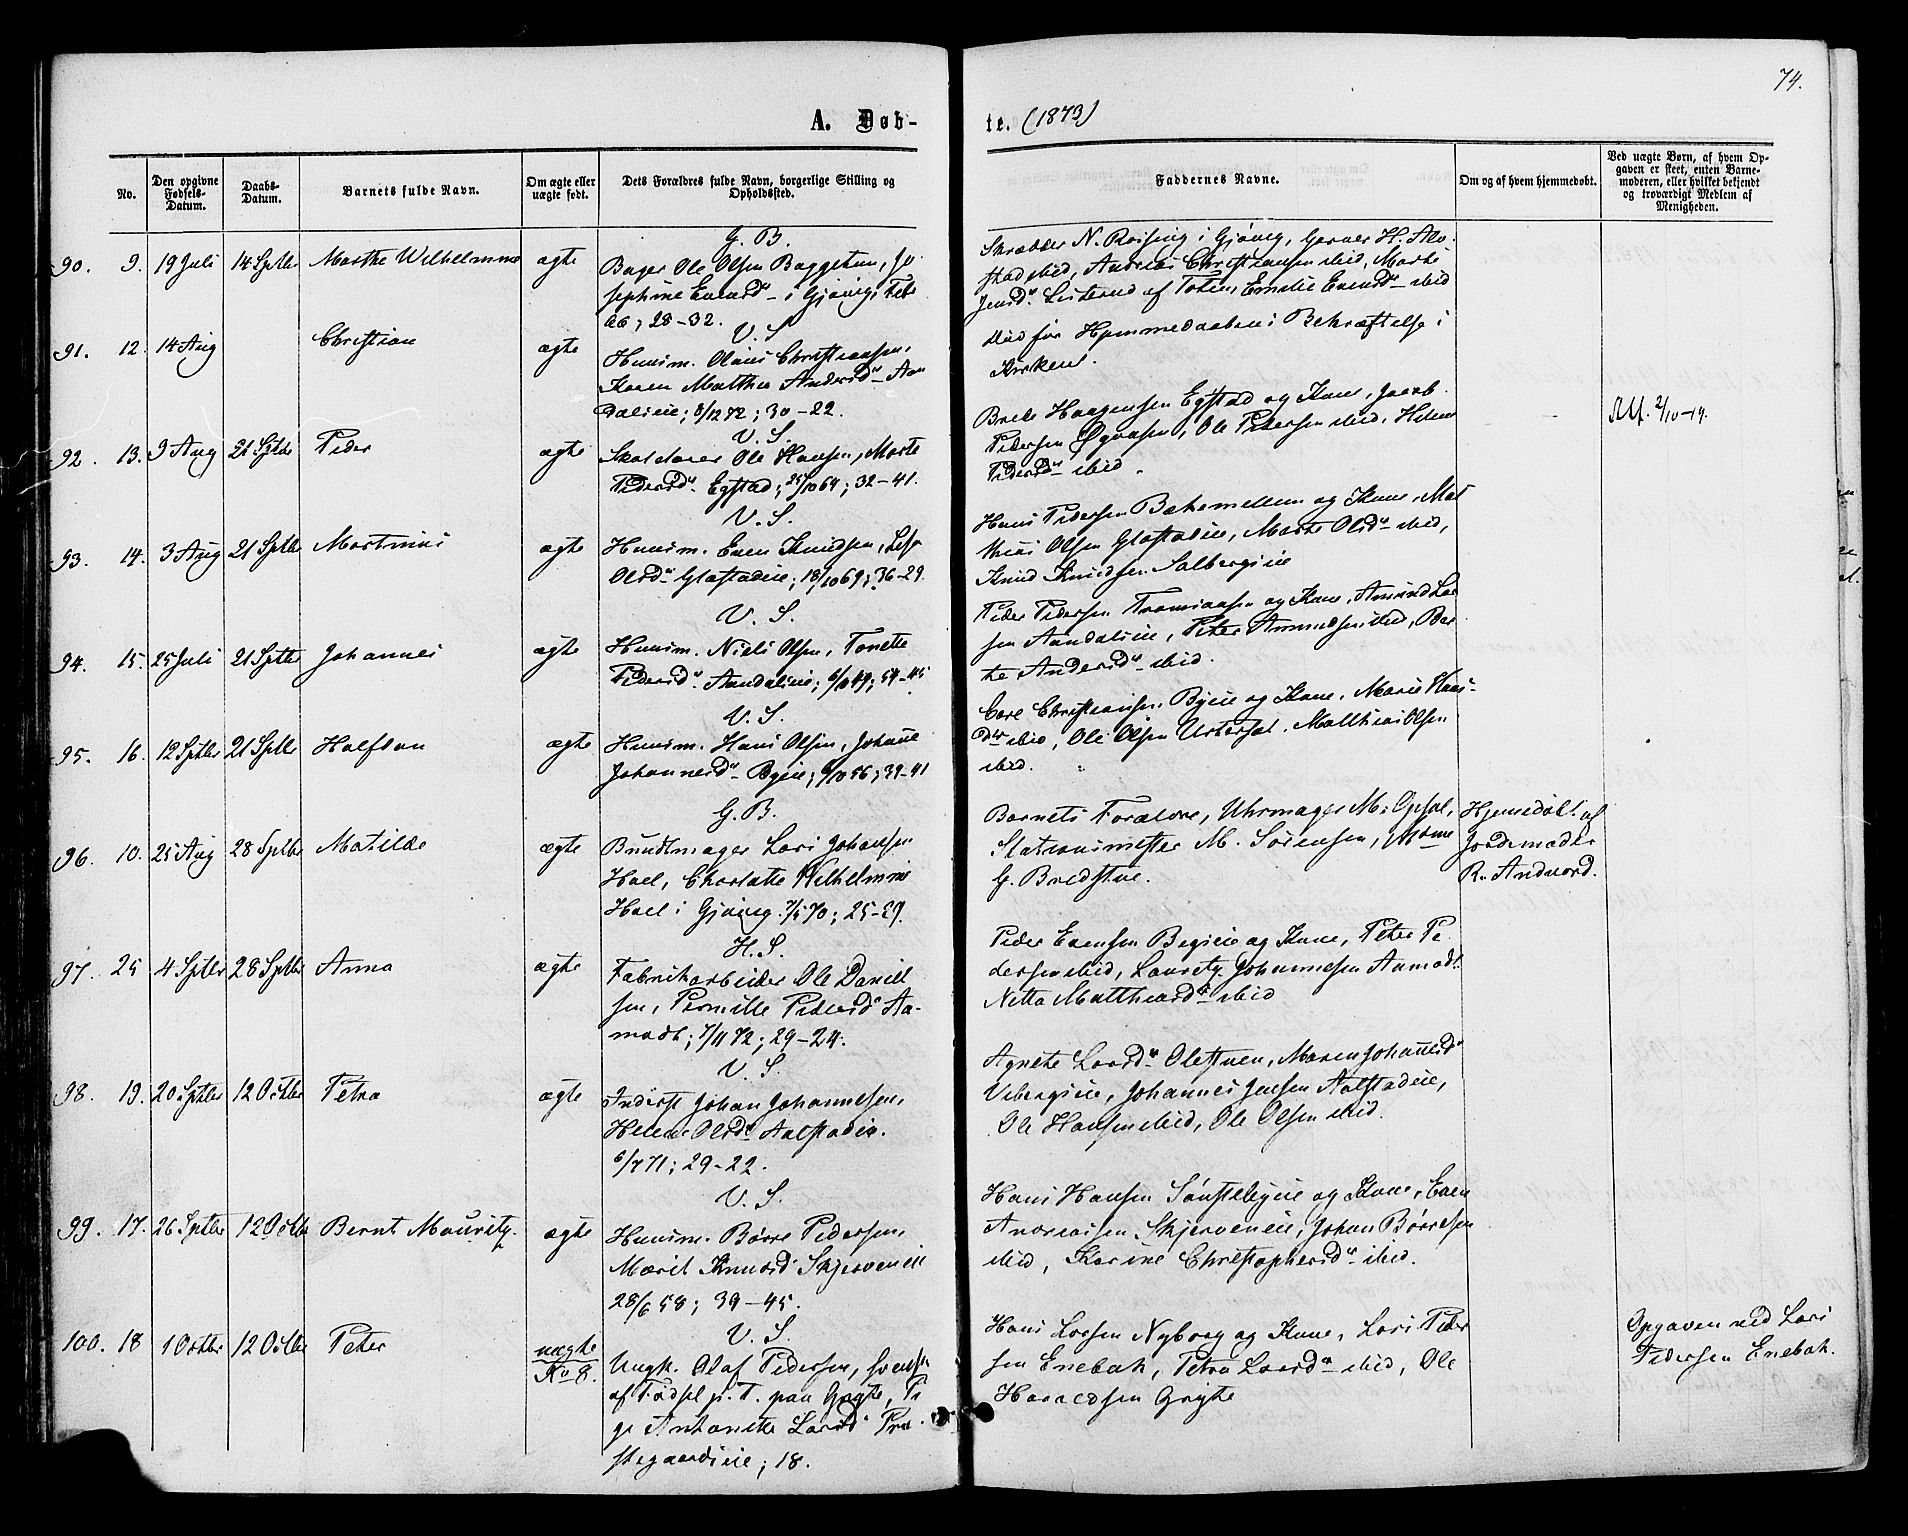 74.
A. Døb-
te. (1873)
No.
Den opgivne Fødsels-Datum.
Daabs-Datum.
Barnets fulde Navn.
Om ægte eller uægte født.
Dets Forældres fulde Navn, borgerlige Stilling og Opholdssted.
Faddernes Navne.
Om og af hvem hjemmedøbt.
Ved uægte Børn, af hvem Op-
gaven er skeet, enten Barne-
moderen, eller hvilket bekjendt
og troværdigt Medlem af
Menigheden.
G. B.
90. 9. 19 Juli 14 Sptbr Marthe Wilhelmine ægte
Bager Ole Olsen Baggetun, Jo-
sephine Evensd. i Gjøvig,
28-32.
Skrædder N. Røising i Gjøvig, Garver H. Alv-
stad ibid, Andreas Christiansen ibid, Marte
Jensd. af Toten, Emelie Evensd. ibid
V. S.
91. 12. 14 Aug Christian ægte
Huusm. Christiansen,
Karen Mathea Andersd. Aan-
dalseie; 8/12 72; 30-22.
Død før Hjemmedaabens Bekræftelse i
Kirken.
V. S.
92. 13. 9 Aug 21 Sptbr Peder ægte
Skolelærer Ole Hansen, Marte
Pedersd. Egstad; 25/10 64; 32-41.
Brede Haagensen Egstad og Kone, Jacob
Pedersen, Ole Pedersen ibid, Helene
Pedersd. ibid.
2/10-19.
V. S.
93. 14. 3 Aug 21 Sptbr Martinus ægte
Huusm. Even Knudsen, Lise
Olsd. Gløstadeie; 18/10 69; 36-29.
Hans Pedersen og Kone, Mat-
hias Olsen Gløstadeie, Marte Olsd. ibid,
Knud Knudsen Salbergeie
V. S.
94. 15. 25 Juli 21 Sptbr Johannes ægte
Huusm. Niels Olsen, Tonette
Pedersd. Aandalseie; 54-45
Peder Pedersen og Kone, Amund Lar-
sen Aandalseie, Peter Amundsen ibid, Ber-
the Andersd. ibid.
V. S.
95. 16. 12 Sptbr 21 Sptbr Halfdan ægte
Huusm. Hans Olsen, Johane
Johannesd. Byeie; 56; 39-41
Carl Christiansen Byeie og Kone, Marie Hans-
dtr ibid, Ole Olsen, Matthias Olsen
ibid.
G. B.
96. 10. 25 Aug 28 Sptbr Matilde ægte
Bundtmager Lars Johansen
Hoel, Charlotte Wilhelmine
Hoel i Gjøvig. 7/5 70; 25-29.
Barnets Forældre, Uhrmager M. Opsal,
Stationsmester M. Sørensen, Mdme
G. Bredstue.
Hjemedøbt af
Jordemoder
R. Andvord.
H. S.
97. 25 4 Sptbr 28 Sptbr Anna ægte
Fabrikarbeider Ole Daniel-
sen, Pernille Pedersd. Aa-
modt; 7/11 72; 29-24.
Peder Evensen og Kone, Peter Pe-
dersen ibid, Lauritz Johannesen Aamodt.
Netta Matthiasd. ibid
V. S.
98. 19. 20 Sptbr 12 Octbr Petra ægte
Inderst Johan Johannesen,
Helene Olsd. Aalstadeie.
6/7 71; 29-22.
Agnete Larsd. Olestuen, Maren Johansd.
Vebergseie, Johannes Jensen Aalstadeie,
Ole Hansen ibid, Ole Olsen ibid.
V. S.
99. 17. 26 Sptbr 12 Octbr Bernt Mauritz. ægte
Huusm. Børre Pedersen,
Marit Knudsd. Skjerveneie
28/6 58; 39-45.
Hans Hansen og Kone, Even
Andreassen Skjerveneie, Johan Børresen
ibid, Karine Christophersd. ibid.
V. S.
100. 18 1 Octbr 12 Octbr Peter uægte
No 8.
Ungk. Olaf Pedersen, svensk
af Fødsel p. T. paa Gryte, Pi-
ge Antonette Larsd. Præ-
stegaardseie; 18.
Hans Larsen Nyborg og Kone, Lars Peder-
sen Enebak, Petra Larsd. ibid, Ole
Haraldsen Gryte
Opgaven ved Lars
Pedersen Enebak.